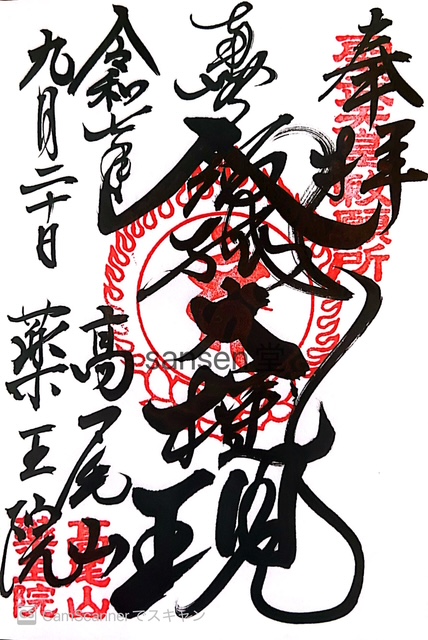 奉拝
飯縄大権現
令和七年
九月二十日
高尾山
薬王院
高尾山
薬王院
sansen 堂
CamScannerでスキャン